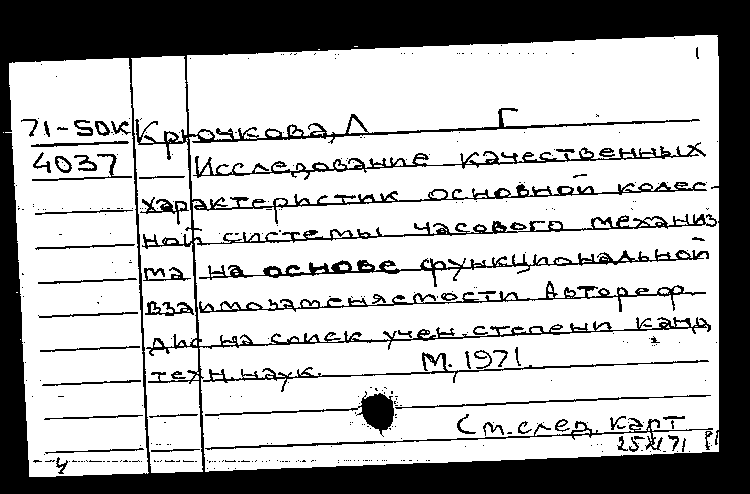 1
71-5DK Крючкова, Л Г
4037 Исследование качественных
характеристик основной колес-
ной системы часового механиз
ма на основе функциональной
взаимозаменяемости. Автореф.
дис. на соиск. учен. степени канд.
техн. наук. М., 1971.
См. след. карт
25 XI 71